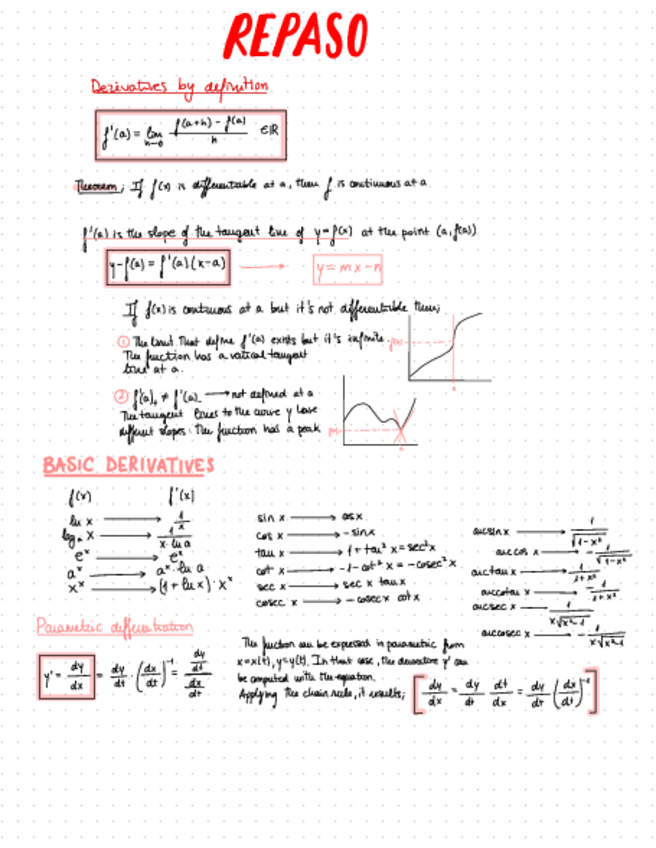 REPASO
Derivatives by definition
f'(a) = lim h→0 f(a+h) - f(a) / h ∈ℝ
Theorem; If f(x) is differentiable at a, then f is continuous at a
f'(a) is the slope of the tangent line of y=f(x) at the point (a, f(a))
y-f(a) = f'(a)(x-a) → y = mx-n
If f(x) is continuous at a but it's not differentiable then;
① The limit that define f'(a) exists but it's infinite.
The function has a vertical tangent
line at a.
② f'(a)+ ≠ f'(a)- → not defined at a
The tangent lines to the curve y have
different slopes. The function has a peak
BASIC DERIVATIVES
f(x) f'(x)
ln x → 1/x
logₐ x → 1/x·ln a
eˣ → eˣ
aˣ → aˣ·ln a
xˣ → (1+ln x)·xˣ
sin x → cosx
cos x → -sinx
tan x → 1+tan² x = sec²x
cot x → -1-cot² x = -cosec²x
sec x → sec x tanx
cosec x → -cosecx cotx
arcsinx → 1/√1-x²
arccos x → -1/√1-x²
arctan x → 1/1+x²
arccotan x → -1/1+x²
arcsec x → 1/x√x²-1
arccosec x → -1/x√x²-1
Parametric differentiation
y' = dy/dx = dy/dt · (dx/dt)⁻¹ = dy/dt / dx/dt
The function can be expressed in parametric from
x=x(t), y=y(t). In that case, the derivative y' can
be computed with the equation.
Applying the chain rule, it results;
dy/dx = dy/dt dt/dx = dy/dt (dx/dt)⁻¹